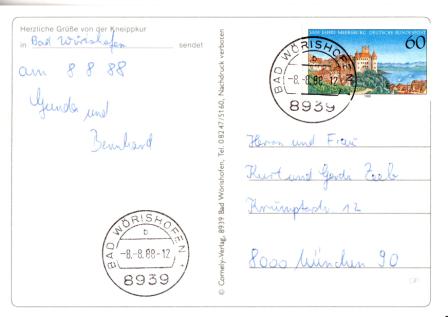 Herzliche Grüße von der Kneippkur
in Bad Wörishofen sendet
am 8 8 88
Gunda und
Bernhard
BAD WÖRISHOFEN
b
-8.-8.88-12
8939
© Cornely-Verlag, 8939 Bad Wörishofen, Tel. 08247/5160, Nachdruck verboten
1000 JAHRE MEERSBURG DEUTSCHE BUNDESPOST
60
BAD WÖRISHOFEN
b
-8.-8.88-12
8939
Herrn und Frau
Kurt und Gerda Zeeb
12
8000 München 90